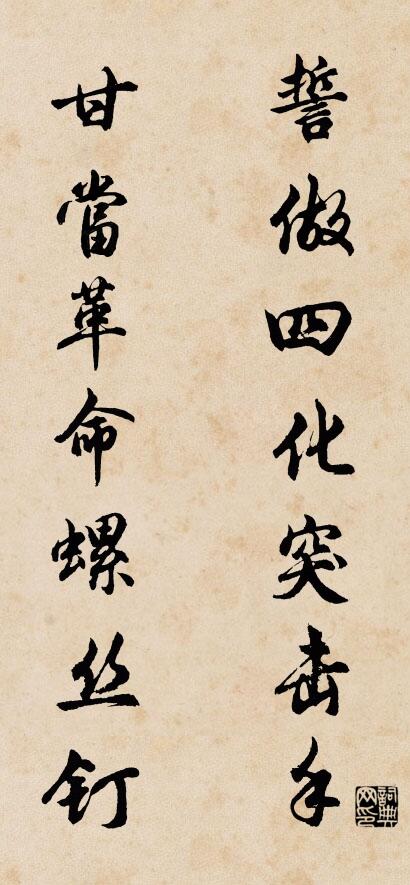 誓做四化突击手
甘當革命螺丝钉
詞典网印